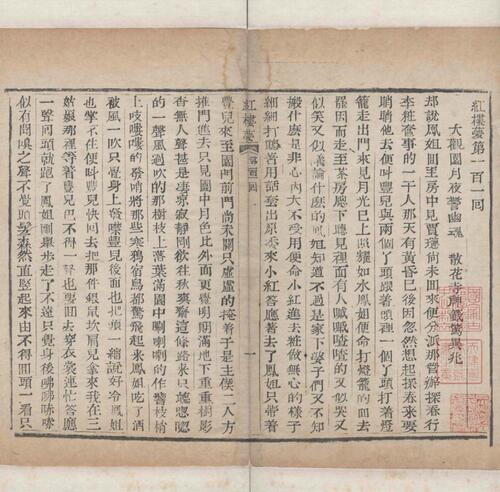 紅樓夢第一百一回
大觀園月夜警幽魂 散花寺神籤驚異兆
却說鳳姐回至房中見賈璉尚未回來便分派那管辦探春行
李粧奩事的一干人那天有黃昏已後因忽然想起探春來要
瞧瞧他去便叫豐兒與兩個丫頭跟着頭裡一個丫頭打着燈
籠走出門來見月光已上照耀如水鳳姐便命打燈籠的回去
罷因而走至茶房窓下聽見裡面有人嘁嘁喳喳的又似哭又
似笑又似議論什麼的鳳姐知道不過是家下婆子們又不知
搬什麼是非心內大不受用便命小紅進去粧做無心的樣子
細細打聽着用話套出原委來小紅答應着去了鳳姐只帶着
紅樓夢 第百一回 一
豐兒來至園門前門尚未關只虛虛的掩着于是主僕二人方
推門進去只見園中月色比外面更覺明朗滿地下重重樹影
杳無人聲甚是凄凉寂靜剛欲往秋爽齋這條路來只聽唿唿
的一聲風過吹的那樹枝上落葉滿園中喇喇喇的作響枝梢
上吱嘍嘍的發哨將那些寒鴉宿鳥都驚飛起來鳳姐吃了酒
被風一吹只覺身上發噤豐兒後面也把頭一縮說好冷鳳姐
也掌不住便叫豐兒快回去把那件銀鼠坎肩兒拿來我在三
姑娘那裡等着豐兒巴不得一聲也要回去穿衣裳連忙答應
一聲回頭就跑了鳳姐剛舉步走了不遠只覺身後咈咈哧哧
似有聞嗅之聲不覺頭髮森然直竪起來由不得回頭一看只